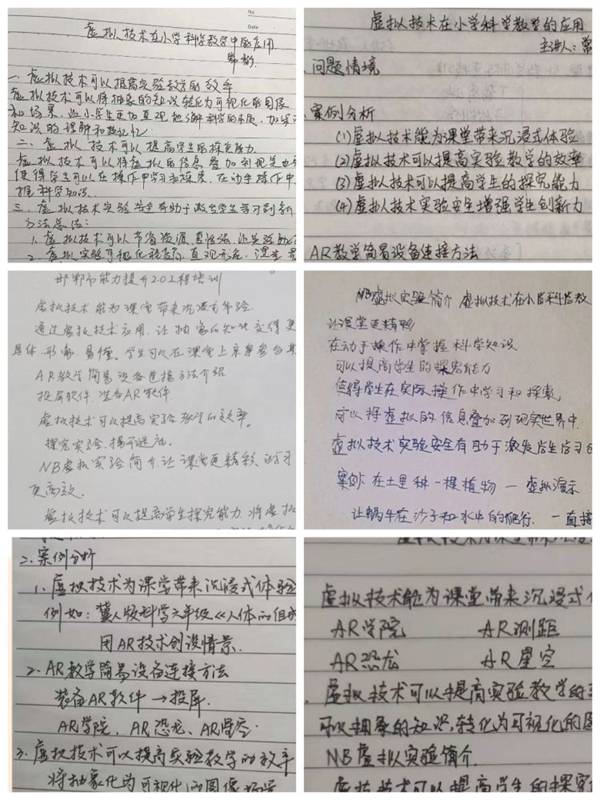 No
Date
虚拟技术在小学科学教学中的应用
一.虚拟技术可以提高实验教学的效率
虚拟技术可以将抽象的知识转化为可视化的图像
和结果,让小学生更加直观地理解科学的本质,加深
知识的理解和记忆
二.虚拟技术可以提高学生的探究能力.
虚拟技术可以将虚拟的信息叠加到现
使得学生可以在操作中学习和探索,在动手操作中
握科学知识.
三.虚拟技术实验安全有助于激发学生学习
方法总结:
1.虚拟技术可以节省资源
2.虚拟实验可视化程度高,直观
虚拟技术在小学科学教学的应用
主讲人:常
问题情境
案例分析
(1)虚拟技术能为课堂带来沉浸式体验
(2)虚拟技术可以提高实验教学的效率
(3)虚拟技术可以提高学生的探究能力
(4)虚拟技术实验安全增强学生创新力
AR教学简易设备连接方法
邯郸市能力提升2.0工程培训
虚拟技术能为课堂带来沉浸式体验
通过虚拟技术应用,让抽象的知识变得更
具体、形象、易懂。学生可以在课堂上亲身参与其
AR教学简易设备连接方法介绍
投屏软件 准备AR软件
虚拟技术可以提高实验教学的效率。
探究实验、揭示过程。
NB虚拟实验简介让课堂更精彩 学习
更高效.
虚拟技术可以提高学生探究能力 将虚拟
NB虚拟实验简介 虚拟技术在小学科学教
让课堂更精彩
在动手操作中掌握科学知识
可以提高学生的探究能力
使得学生在实际操作中学习和探索,
可以将虚拟的信息叠加到现实世界中.
虚拟技术实验安全有助于激发学生学习的
案例:在土里种一棵植物 — 虚拟演示
让蜗牛在沙子和水中的爬行. — 直接
2.案例分析
1.虚拟技术为课堂带来沉浸式体验
例如:冀人版科学六年级《人体的组成
用AR技术创设情景.
2.AR教学简易设备连接方法
装备AR软件→投屏.
AR学院、AR恐龙、AR星空.
3.虚拟技术可以提高实验教学的效率
将抽象化为可视化的图像
虚拟技术能为课堂带来沉浸式
AR学院 AR测距
AR恐龙 AR星空
虚拟技术可以提高实验教学的
可以抽象的知识,转化为可视化的图
NB虚拟实验简介.
虚拟技术可以提高学生的探究